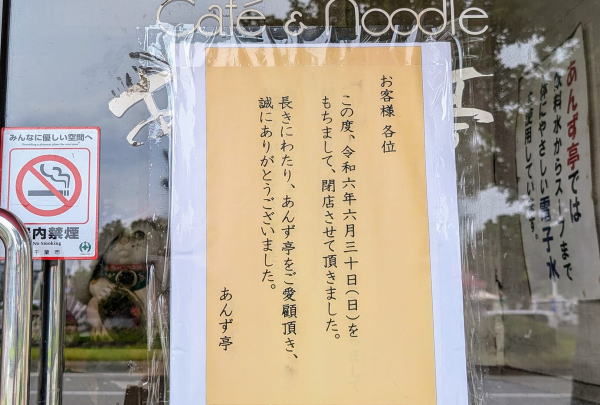 Café & Noodle
お客様 各位
この度、令和六年六月三十日(日)を
もちまして、閉店させて頂きました。
長きにわたり、あんず亭をご愛顧頂き、
誠にありがとうございました。
あんず亭
みんなに優しい空間へ
内禁煙
No Smoking
千葉市
あんず亭では
飲料水からスープまで
体にやさしい電子水
使用しています。